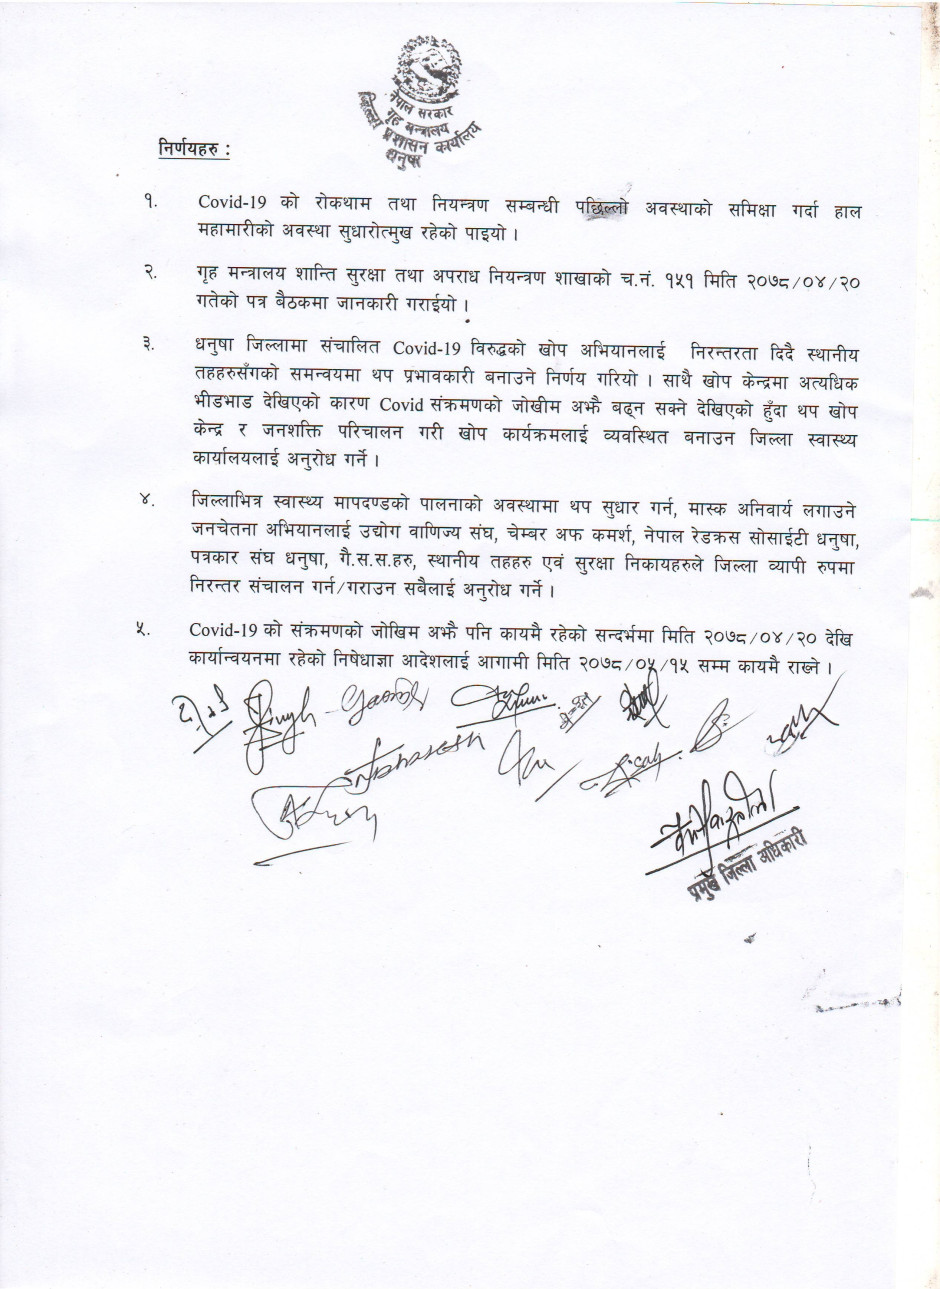 नेपाल सरकार
गृह मन्त्रालय
जिल्ला प्रशासन कार्यालय
धनुषा
निर्णयहरु :
१. Covid-19 को रोकथाम तथा नियन्त्रण सम्बन्धी पछिल्लो अवस्थाको समिक्षा गर्दा हाल
महामारीको अवस्था सुधारोत्मुख रहेको पाइयो ।
२. गृह मन्त्रालय शान्ति सुरक्षा तथा अपराध नियन्त्रण शाखाको च.नं. १५१ मिति २०७८/०४/२०
गतेको पत्र बैठकमा जानकारी गराईयो ।
३. धनुषा जिल्लामा संचालित Covid-19 विरुद्धको खोप अभियानलाई निरन्तरता दिदै स्थानीय
तहहरुसँगको समन्वयमा थप प्रभावकारी बनाउने निर्णय गरियो । साथै खोप केन्द्रमा अत्यधिक
भीडभाड देखिएको कारण Covid संक्रमणको जोखीम अझै बढ्न सक्ने देखिएको हुँदा थप खोप
केन्द्र र जनशक्ति परिचालन गरी खोप कार्यक्रमलाई व्यवस्थित बनाउन जिल्ला स्वास्थ्य
कार्यालयलाई अनुरोध गर्ने ।
४. जिल्लाभित्र स्वास्थ्य मापदण्डको पालनाको अवस्थामा थप सुधार गर्न, मास्क अनिवार्य लगाउने
जनचेतना अभियानलाई उद्योग वाणिज्य संघ, चेम्बर अफ कमर्श, नेपाल रेडक्रस सोसाईटी धनुषा,
पत्रकार संघ धनुषा, गै.स.स.हरु, स्थानीय तहहरु एवं सुरक्षा निकायहरुले जिल्ला व्यापी रुपमा
निरन्तर संचालन गर्न/गराउन सबैलाई अनुरोध गर्ने ।
५. Covid-19 को संक्रमणको जोखिम अझै पनि कायमै रहेको सन्दर्भमा मिति २०७८/०४/२० देखि
कार्यान्वयनमा रहेको निषेधाज्ञा आदेशलाई आगामी मिति २०७८/०५/१५ सम्म कायमै राख्ने ।
प्रमुख जिल्ला अधिकारी